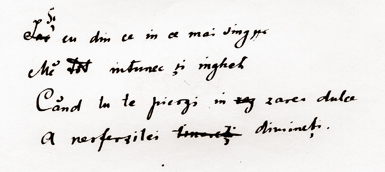 Și eu din ce in ce mai singur
Mĕ intunec și ingheț
Când tu te pierzi in zarea dulce
A nesferșitei tinereți dimineți.